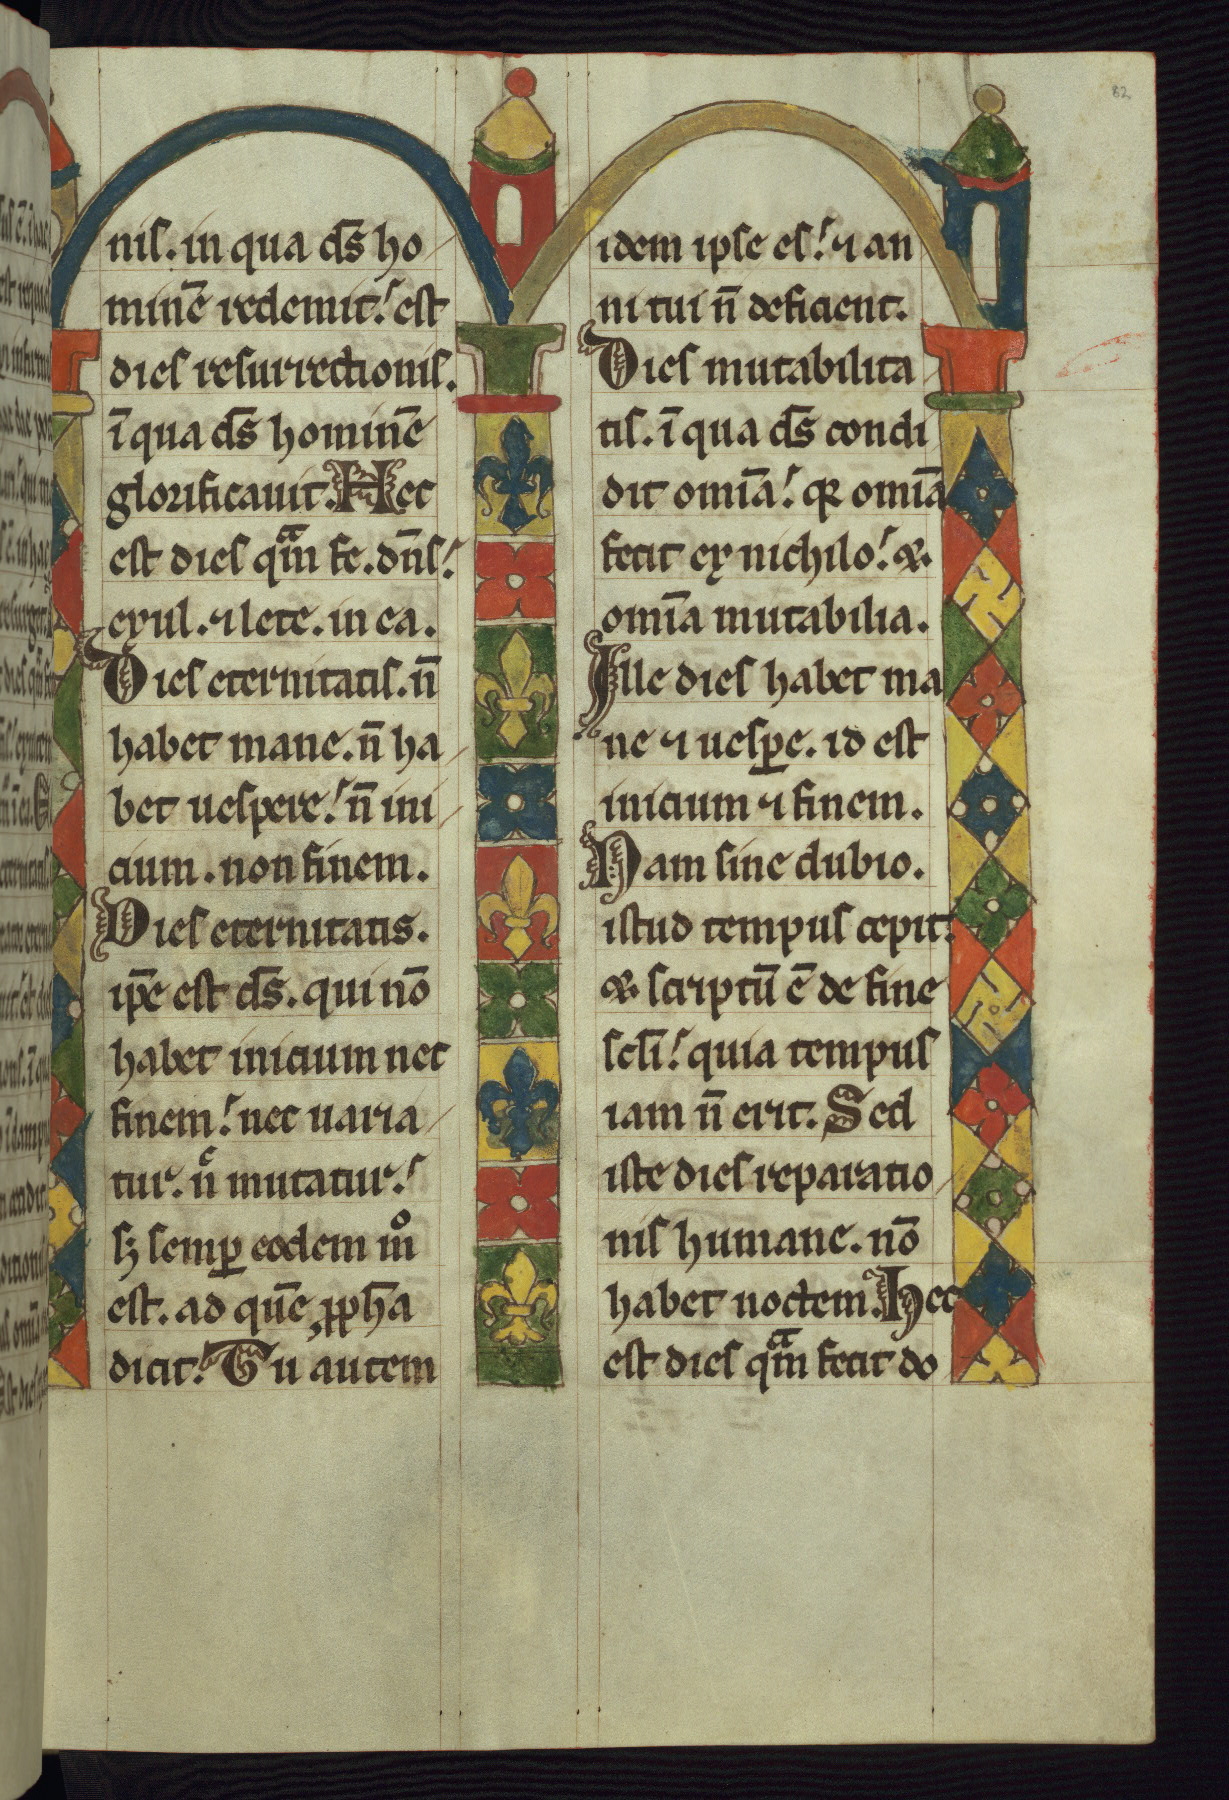 82
nis. in qua d̄s ho
minē redemit! est
dies resurrectionis.
ī qua d̄s hominē
glorificauit. Hec
est dies qᵃm fe. dn̄s!
exul. ⁊ lete. in ea.
Dies eternitatis. n̄
habet mane. n̄ ha
bet uespere! n̄ ini
cium. non finem.
Dies eternitatis.
ip̄e est d̄s. qui nō
habet inicium nec
finem! nec uaria
tur. n̄ᶜ mutatur!
sꝫ semꝑ eodem mᵒ
est. ad quē ꝓph̄a
dicit! Tu autem
idem ipse es! ⁊ an
ni tui n̄ deficient.
Dies mutabilita
tis. ī qua d̄s condi
dit om̄ia! qꝛ om̄ia
fecit ex nichilo! &
om̄ia mutabilia.
Ille dies habet ma
ne ⁊ uesꝑe. id est
inicium ⁊ finem.
Nam sine dubio.
istud tempus cepit!
& scriptū ē de fine
sc̄li! quia tempus
iam n̄ erit. Sed
iste dies reparatio
nis humane. nō
habet noctem. Hec
est dies qᵃm fecit do